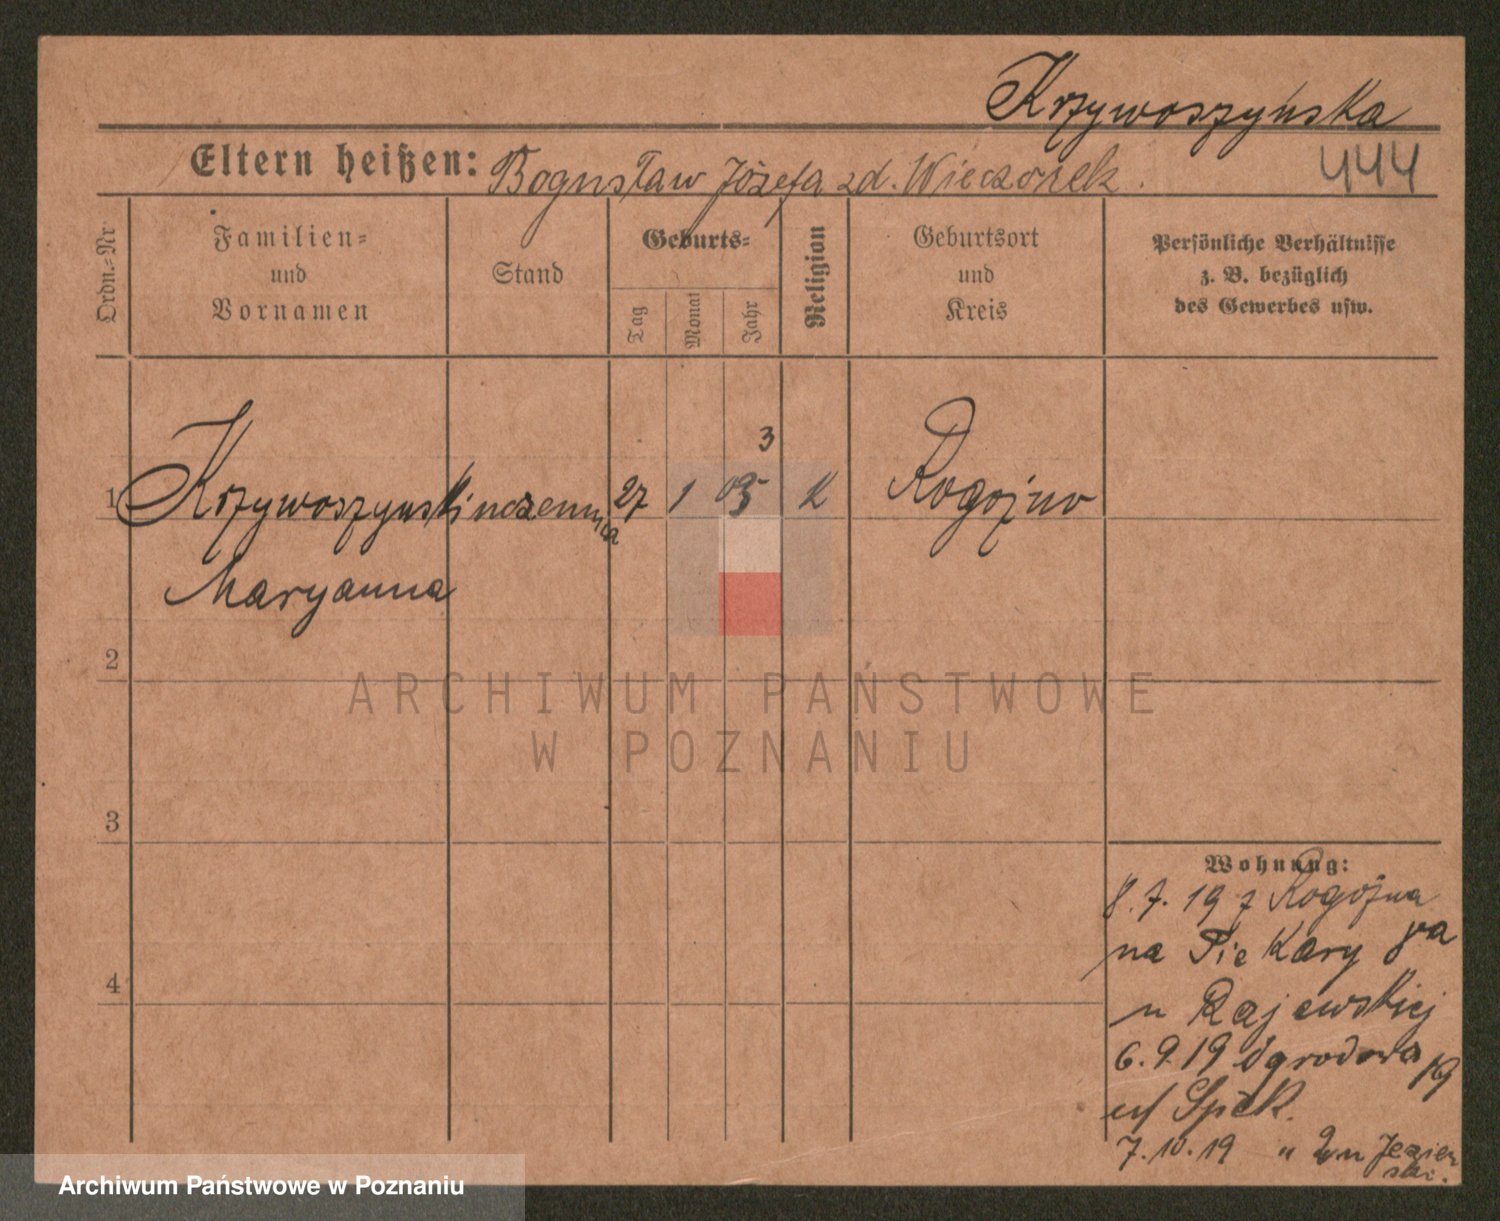 Krzywoszyńska
Eltern heißen: Bogusław Józefa zd. Wieczorek.
444
Ordn.=Nr
Familien=
und
Vornamen
Stand
Geburts=
Tag
Monat
Jahr
Religion
Geburtsort
und
Kreis
Persönliche Verhältnisse
z. B. bezüglich
des Gewerbes usw.
3
1 Krzywoszynski uczennica 27 1 05 K Rogoźno
Maryanna
2
ARCHIWUM PAŃSTWOWE
W POZNANIU
3
Wohnung:
8.7.19 z Rogoźna
na Piekary
u Rajewskiej
4
6.9.19 Ogrodowa 19
Spek.
7.10.19 " Jezier
ski.
Archiwum Państwowe w Poznaniu